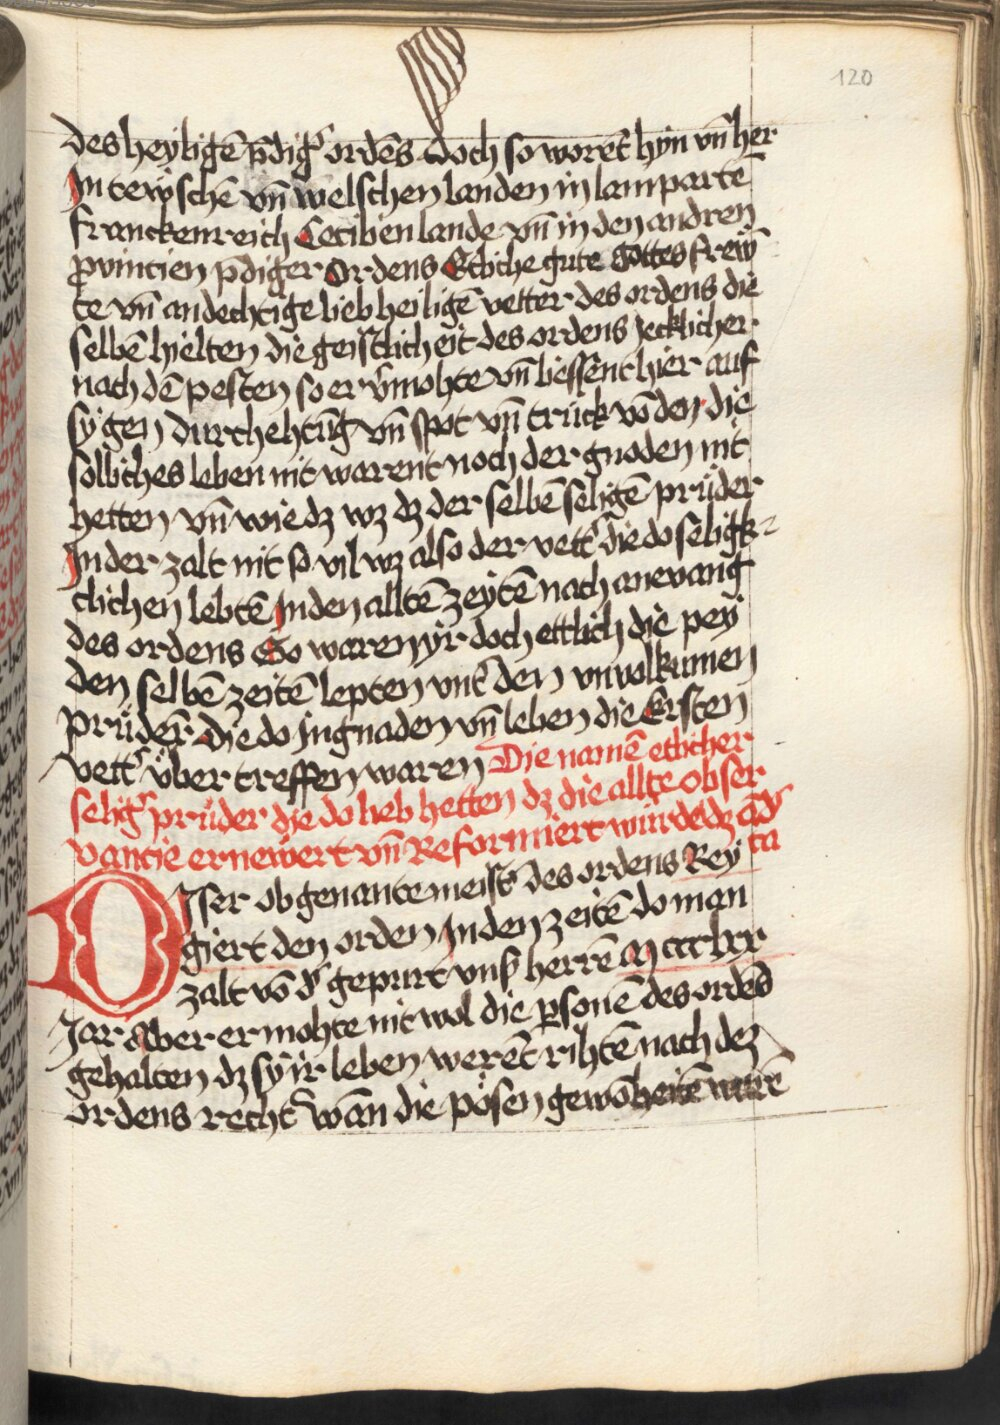 120
des heyligē p̄dig᷑ ordēs doch so worēt hyn vn̄ her
In tewschē vn̄ welschen landen in lamparte
franckenreich Ceciben lande vn̄ in den andren
provincien p̄diger Ordens Etliche gute gottes frewn̄
te vn̄ andechtige lieb heiligē vetter des ordens die
selbē hielten die geistlicheit des ordens Jecklicher
nach dē pesten so er v᷑mohte vn̄ liessent hier auf
sy gen durchehtūg vn̄ spot vn̄ truck vō den die
solliches leben nit warent noch der gnoden nit
hetten vn̄ wie dz wz dz der selbē seligē prüder
In der zalt nit so vil wz also der vett᷑ die do seligk
clichen lebtē In den alltē zeytē nach anevang
des ordens So waren yr doch ettlich die pey
den selbē zeitē lepten vnt᷑ den vnvolkumen
prüdēr die do In gnaden vn̄ leben die Ersten
vett᷑ über treffen waren Die namē etlicher
selig᷑ prüder die do lieb hetten dz die allte obser
vancie ernewert vn̄ Reformiert würde dz
DJser obgenante meist᷑ des ordens Rey
giert den orden In den zeitē do man
zalt vō d᷑ gepurt vnß herrē M ccc lxx
Jar Aber er mohte nit wol die p̲sonē des ordēs
gehalten dz sy ir leben werēt rihtē nach dez
ordens recht wan die pösen gewōheitē warē